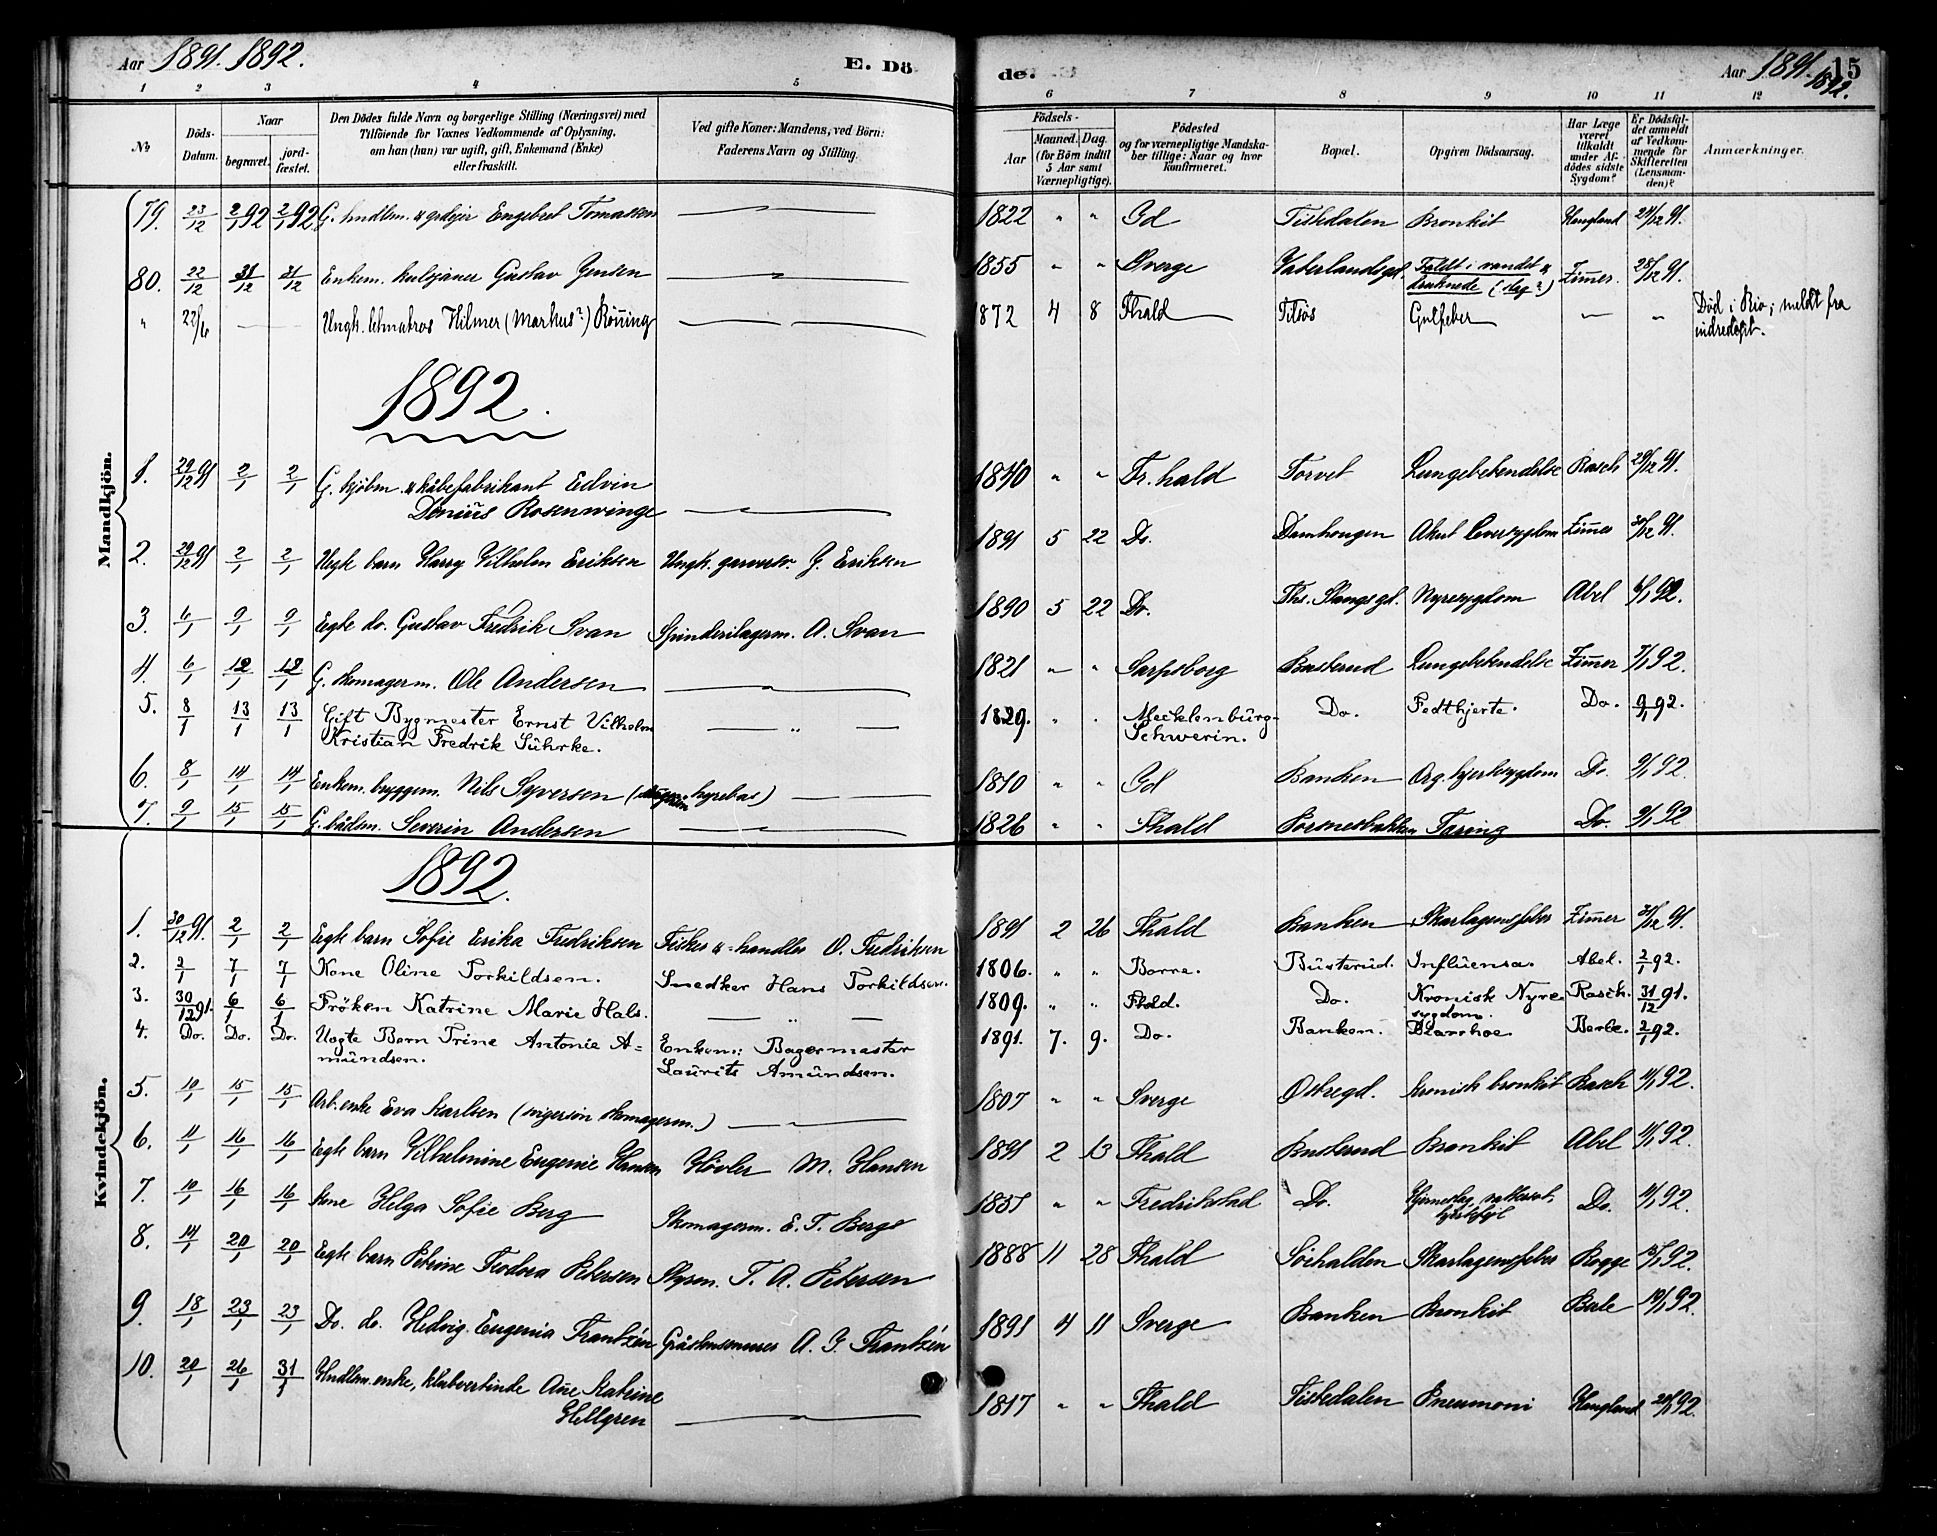 Aar 1891. 1892.
E. Dö
de.
Aar 1891. 1892.
15
1 2 3 4 5 6 7 8 9 10 11 12
№
Döds-Datum.
Naar
begravet.
jord-fæstet.
Den Dödes fulde Navn og borgerlige Stilling (Næringsvei) med
Tilföiende for Voxnes Vedkommende af Oplysning,
om han (hun) var ugift, gift, Enkemand (Enke)
eller fraskilt.
Ved gifte Koner: Mandens, ved Börn:
Faderens Navn og Stilling.
Födsels-
Aar
Maaned. Dag.
(for Börn indtil
5 Aar samt
Værnepligtige).
Födested
og for værnepligtige Mandska-
ber tillige: Naar og hvor
konfirmeret.
Bopæl.
Opgiven Dödsaarsag.
Har Læge
været
tilkaldt
under Af-
dödes sidste
Sygdom?
Er Dödsfal-
det anmeldt
af Vedkom-
mende for
Skifteretten
(Lensman-
den)?
Anmærkninger.
Mandkjön.
79. 23/12 2/1 92 2/1 92 G. husdlm. & gdeier Engebret Tomassen 1822 " " Id Tistedalen Bronkit Haugland 24/12 91.
80. 22/12 31/12 31/12 Enkem. Gustav Jensen 1855 " " Sverge Vaterlandsgd. Faldt i vandet & druknede (slag?) Zimer. 25/12 91.
" 22/6 Ungk. letmatros Hilmer (Markus?) Rönning 1872 4 8 Fhald Tilsös Gulfeber " Död i Rio; meldt fra indredept.
1892.
1. 29/12 91 2/1 2/1 G. kjöbm. & kåbefabrikant Edvin
Denius Rosenwinge 1840 " " Fr.hald Torvet Lungebetendelse Rasch 29/12 91.
2. 29/12 91 2/1 2/1 Uegte barn Harry Vilhelm Eriksen Ungk. garversv. G. Eriksen 1891 5 22 Do. Damhougen Akut Leversygdom Zimer 30/12 91.
3. 6/1 9/1 9/1 Egte do. Gustav Fredrik Svan Spinderilagerm. A. Svan 1890 5 22 Do. Ths. Stangsgd. Nyresygdom Abel 6/1 92.
4. 6/1 12/1 12/1 G. skomagerm. Ole Andersen 1821 " " Sarpsborg Busterud Lungebetendelse Zimmer 7/1 92.
5. 8/1 13/1 13/1 Gift Bygmester Ernst Vilhelm
Kristian Fredrik Sührke. " 1829. " " Mecklenbürg-
Schwerin. Do. Fedthjerte. Do. 9/1 92.
6. 8/1 14/1 14/1 Enkem. bryggem. Nils Syversen (svigersön hyrebas) 1810 " " Id Banken Org. hjertesygdom Do. 9/1 92.
7. 9/1 15/1 15/1 G. bådsm. Severin Andersen 1826 " " Fhald Porsnesbakken Tæring Do. 9/1 92
Kvindekjön.
1892.
1. 30/12 91. 2/1 2/1 Egte barn Sofie Erika Fredriksen Fisker & -handler O. Fredriksen 1891 2 26 Fhald Banken Skarlagensfeber Zimer 31/12 91.
2. 2/1 7/1 7/1 Kone Oline Torkildsen. Snedker Hans Torkildsen. 1806. " " Borre. Büsterüd. Inflüensa. Abel. 2/1 92.
3. 30/12 91. 6/1 6/1 Fröken Katrine Marie Hals. " 1809. " " Fhald. Do. Kronisk Nyre-
sygdom. Rasch. 31/12 91.
4. Do. Do. Do. Uegte Barn Trine Antonie A=
mündsen. Enkem: Bagermester
Laurits Amündsen. 1891. 7. 9. Do. Banken. Diarrhoe Berle. 2/1 92.
5. 10/1 15/1 15/1 Arb.enke Eva Karlsen (svigersön skomagerm.) 1807 " " Sverge Ostregd. kronisk bronkit Rasch 11/1 92.
6. 11/1 16/1 16/1 Egte barn Vilhelmine Eugenie Hansen Hövler M. Hansen 1891 2 13 Fhald Busterud Bronkit Abel 11/1 92.
7. 10/1 16/1 16/1 Kone Helga Sofie Berg Skomagerm. E. T. Berg 1837 " " Fredrikstad Do. Hjerneslag, vattersot, hjertefeil Do. 11/1 92.
8. 14/1 20/1 20/1 Egte barn Petrine Teodora Petersen Styrm. T. A. Petersen 1888 11 28 Fhald Söihalden Skarlagensfeber Rogge 15/1 92.
9. 18/1 23/1 23/1 Do. do. Hedvig Eugenia Frantzén Gråstensmurer A. J. Frantzén 1891 4 11 Sverge Banken Bronkit Berle 19/1 92.
10. 20/1 26/1 31/1 Husdlm.enke, klubvertinde Ane Katrine
Hellgren 1817 " " Fhald Tistedalen Pneumoni Haugland 20/1 92.